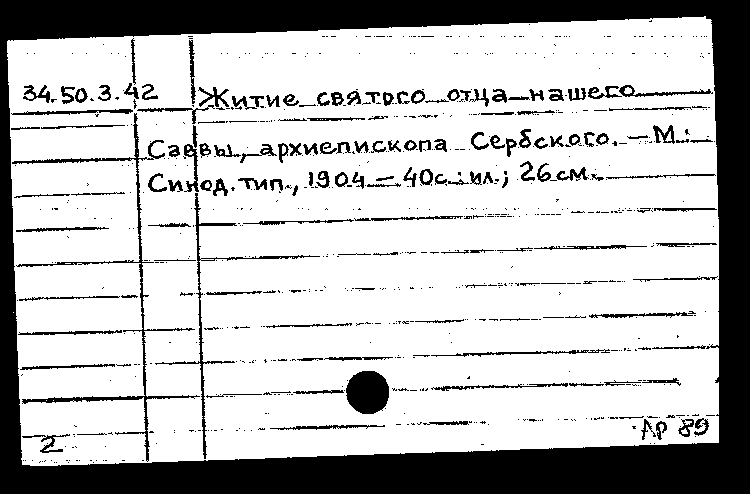 34.50.3.42 Житие святого отца нашего
Саввы, архиепископа Сербского. — М.:
Синод. тип., 1904 — 40с.: ил.; 26 см.
2 АР 89